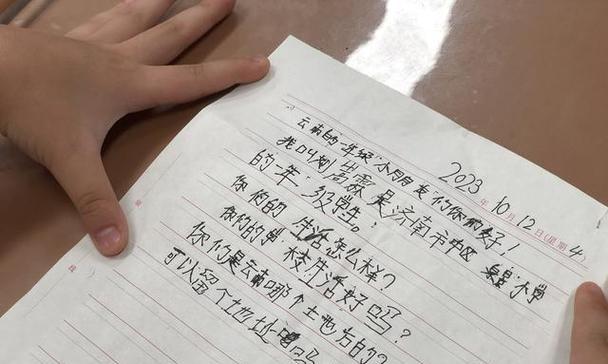 2023年10月12日(星期4
云南的一年级"小朋友"们你们好!
我叫刘 是济南市中区 小学
的一年级学生。
你们的 生活怎么样?
你们的学校生活好吗?
你们是云南哪个土地方的?
可以留个地址吗